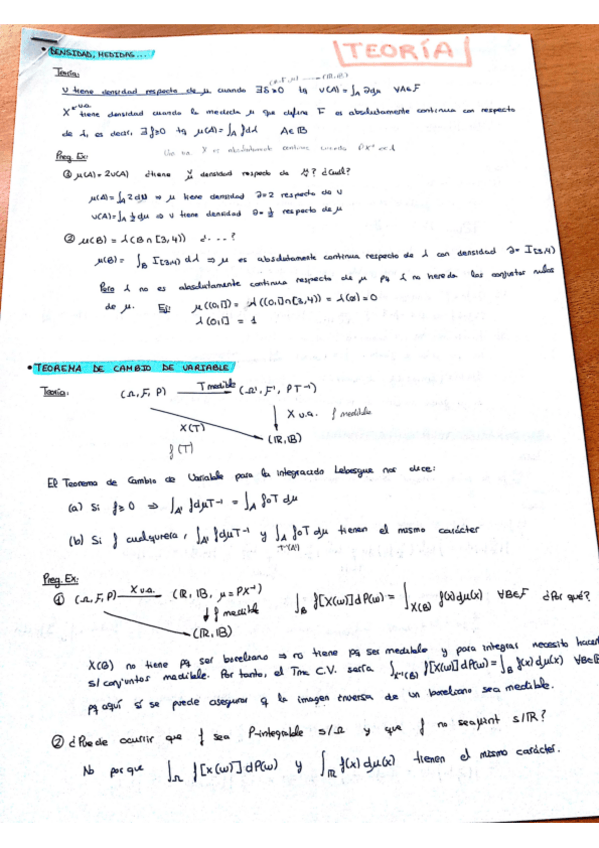 TEORÍA
• DENSIDAD, MEDIDAS...
Teoría:
ν tiene densidad respecto de μ cuando ∃∂≥0 tq ν(A)=∫_A ∂dμ ∀A∈F
X v.a. tiene densidad cuando la medida μ que define F es absolutamente continua con respecto
de λ, es decir, ∃f≥0 tq μ(A)=∫_A fdλ A∈IB
Preg. Ex:
Una v.a. X es absolutamente continua cuando PX⁻¹ << λ
① μ(A) = 2ν(A) ¿tiene μ densidad respecto de ν? ¿Cuál?
μ(A)=∫_A 2dν ⇒ μ tiene densidad ∂=2 respecto de ν
ν(A)=∫_A ½dμ ⇒ ν tiene densidad ∂=½ respecto de μ
② μ(B) = λ(B∩[3,4)) ¿...?
μ(B) = ∫_B I[3,4) dλ ⇒ μ es absolutamente continua respecto de λ con densidad ∂= I[3,4)
Pero λ no es absolutamente continua respecto de μ pq λ no hereda los conjuntos nulos
de μ. Ej: μ((0,1]) = λ((0,1]∩[3,4)) = λ(∅)=0
λ(0,1] = 1
• TEOREMA DE CAMBIO DE VARIABLE
Teoría: (Ω, F, P) T medible (Ω', F', PT⁻¹)
X(T) X v.a. f medible
f(T) (IR, IB)
El Teorema de Cambio de Variable para la integración Lebesgue nos dice:
(a) Si f≥0 ⇒ ∫_A' fdμT⁻¹ = ∫_A f∘T dμ
(b) Si f cualquiera, ∫_A' fdμT⁻¹ y ∫_T⁻¹(A') f∘T dμ tienen el mismo carácter
Preg. Ex:
① (Ω, F, P) X v.a. (IR, IB, μ=PX⁻¹) ∫_B f[X(ω)]dP(ω) = ∫_X(B) f(x)dμ(x) ∀B∈F ¿Por qué?
f medible
(IR, IB)
X(B) no tiene pq ser boreliano ⇒ no tiene pq ser medible y para integrar necesito hacerlo
s/ conjuntos medible. Por tanto, el Tma C.V. sería ∫_X⁻¹(B) f[X(ω)]dP(ω)=∫_B f(x)dμ(x) ∀B∈
pq aquí sí se puede asegurar q la imagen inversa de un boreliano sea medible.
② ¿Puede ocurrir que f sea P-integrable s/Ω y que f no sea μint s/IR?
No porque ∫_Ω f[X(ω)]dP(ω) y ∫_IR f(x)dμ(x) tienen el mismo carácter.